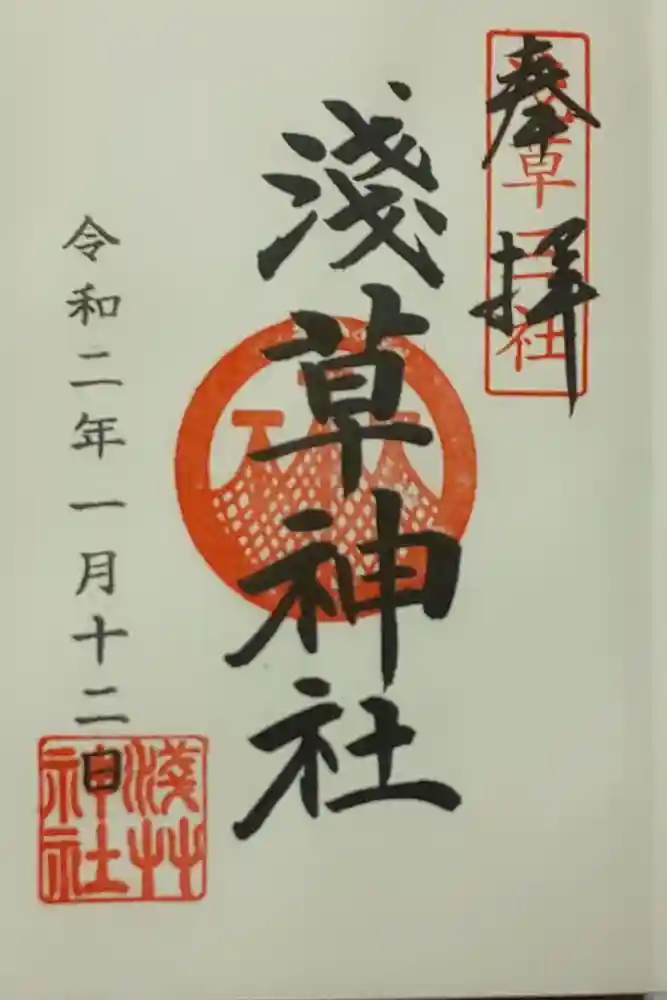 奉拝
淺草神社
令和二年一月十二日
淺艸
神社